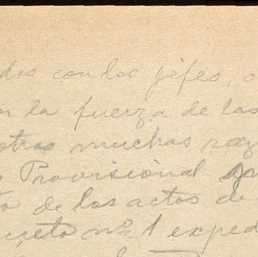 con los jefes, o
la fuerza de las
otras muchas raz
Provisional
de los actos de
creto no. 1 exped